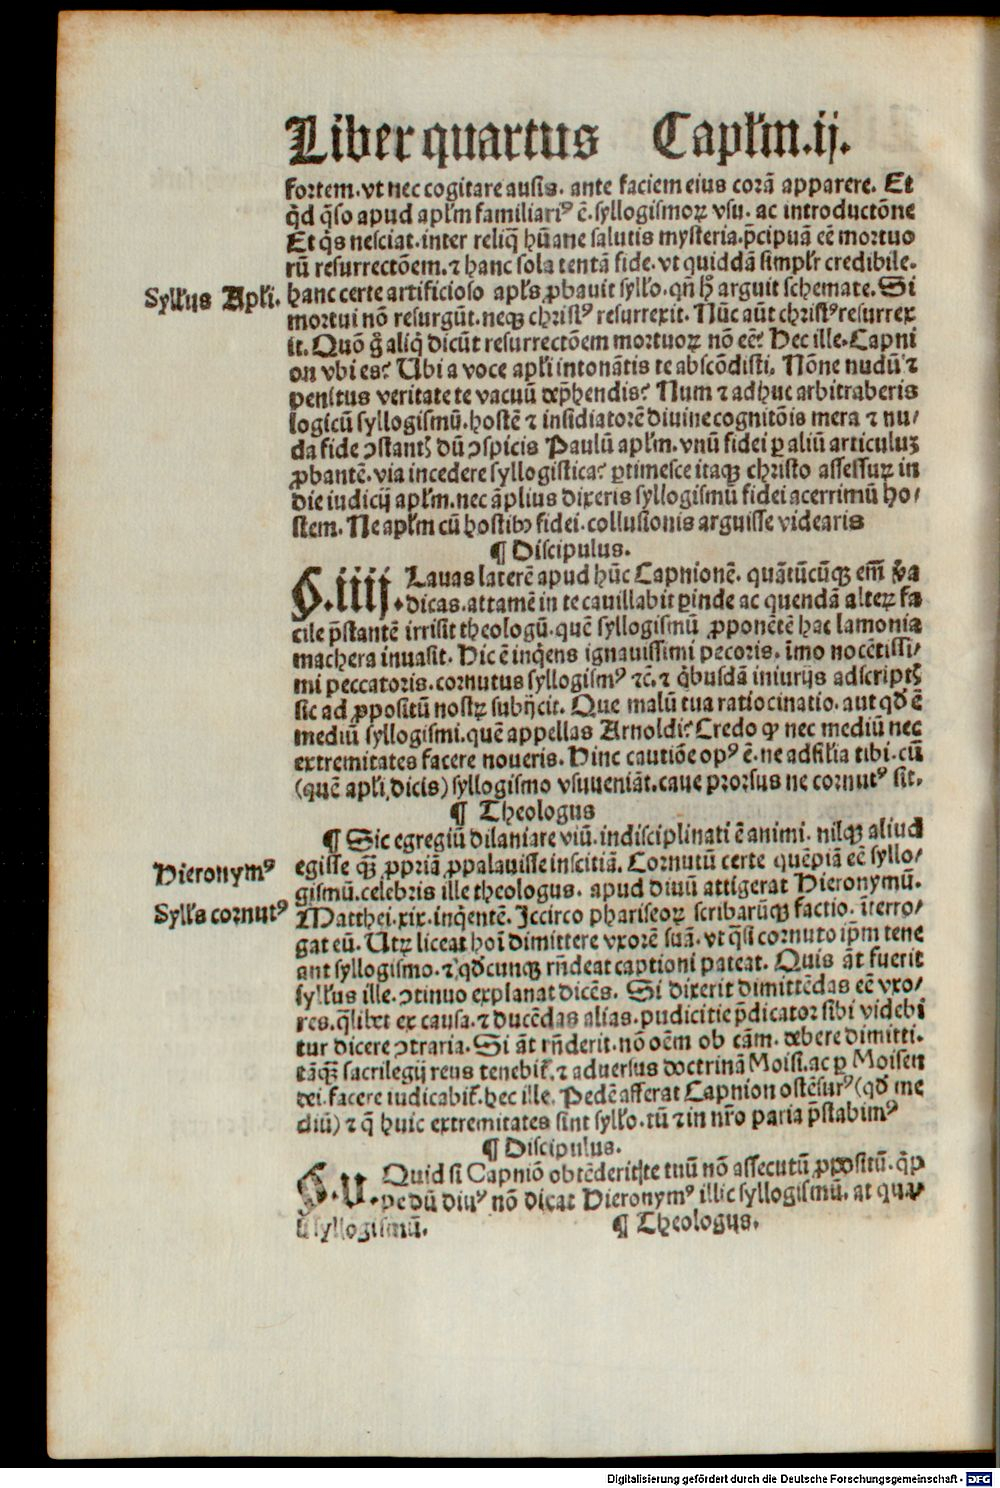 Liber quartus Capl'm.ij.
fortem.vt nec cogitare ausis. ante faciem eius corā apparere. Et
q̄d q̄so apud apl'm familiariꝰ ē.syllogismoꝝ vsu. ac introductōne
Et q̄s nesciat.inter reliq̄ hūane salutis mysteria.p̄cipuā eē mortuo
rū resurrectōem.⁊ hanc sola tentā fide.vt quiddā simpl'r credibile.
Syll'us Apl'i.
hanc certe artificioso apl's ꝓbauit syll'o.qn̄ hͦ arguit schemate. Si
mortui nō resurgūt.neqꝫ christꝰ resurrexit. Nūc aūt christꝰ resurrex
it. Quō ḡ aliq̄ dicūt resurrectōem mortuoꝝ nō eē? Hec ille.Capni
on vbi es? Ubi a voce apl'i intonātis te abscōdisti. Nōne nudū ⁊
penitus veritate te vacuū dep̄hendis? Num ⁊ adhuc arbitraberis
logicū syllogismū.hostē ⁊ insidiatorē diuine cognitōis mera ⁊ nu/
da fide ꝯstantꝭ dū ꝯspicis Paulū apl'm.vnū fidei ꝑ aliū articuluꝫ
ꝓbantē.via incedere syllogistica? ꝑtimesce itaqꝫ christo assessuꝝ in
die iudicij apl'm.nec āplius dixeris syllogismū fidei acerrimū ho/
stem. Ne apl'm cū hostibꝫ fidei.collusionis arguisse videaris
¶ Discipulus.
H.iiij. Lauas laterē apud hūc Capnionē. quātūcūqꝫ em̄ v̄a
dicas.attamē in te cauillabit ꝑinde ac quendā alteꝝ fa
cile p̄stantē irrisit theologū.quē syllogismū ꝓponētē hac lamonia
machera inuasit. Hic ē inq̄ens ignauissimi pecoris. īmo nocētissi/
mi peccatoris.cornutus syllogismꝰ ⁊c̄.⁊ q̄busdā iniurijs adscriptꝭ
sic ad ꝓpositū nostꝝ subijcit. Que malū tua ratiocinatio.aut qd̄ ē
mediū syllogismi.quē appellas Arnoldi? Credo ꝙ nec mediū nec
extremitates facere noueris. Hinc cautiōe opꝰ ē.ne adfilia tibi.cū
(quē apl'i dicis) syllogismo vsuueniāt.caue prorsus ne cornutꝰ sit.
¶ Theologus
¶ Sic egregiū dilaniare viū.indisciplinati ē animi. nilqꝫ aliud
Hieronymꝰ
egisse qꝫ̄ ꝓpriā ꝓpalauisse inscitiā. Cornutū certe quēpiā eē syllo/
gismū.celebris ille theologus. apud diuū attigerat Hieronymū.
Syll's cornutꝰ
Matthei.xix.inq̄entē. Iccirco phariseoꝝ scribarūqꝫ factio. īterro/
gat eū. Utꝝ liceat hoī dimittere vxorē suā.vt q̄si cornuto ip̄m tene
ant syllogismo.⁊ qd̄cunqꝫ rn̄deat captioni pateat. Quis āt fuerit
syll'us ille.ꝯtinuo explanat dicēs. Si dixerit dimittēdas eē vxo/
res.q̄libet ex causa.⁊ ducēdas alias.pudicitie p̄dicator sibi videbi
tur dicere ꝯtraria.Si āt rn̄derit.nō oēm ob cām.debere dimitti.
tāqꝫ̄ sacrilegij reus tenebit̄.⁊ aduersus doctrinā Moisi.ac ꝑ Moisen
dei.facere iudicabit̄.hec ille. Pedē afferat Capnion ostēsurꝰ (qd̄ me
diū) ⁊ q̄ huic extremitates sint syll'o.tū ⁊ in nr̄o paria p̄stabimꝰ
¶ Discipulus.
H.v. Quid si Capniō obtēderit te tuū nō assecutū ꝓpositū.q̄p
pe dū diuꝰ nō dicat Hieronymꝰ illic syllogismū.at qua/
si syllogismū. ¶ Theologus.
Digitalisierung gefördert durch die Deutsche Forschungsgemeinschaft - DFG